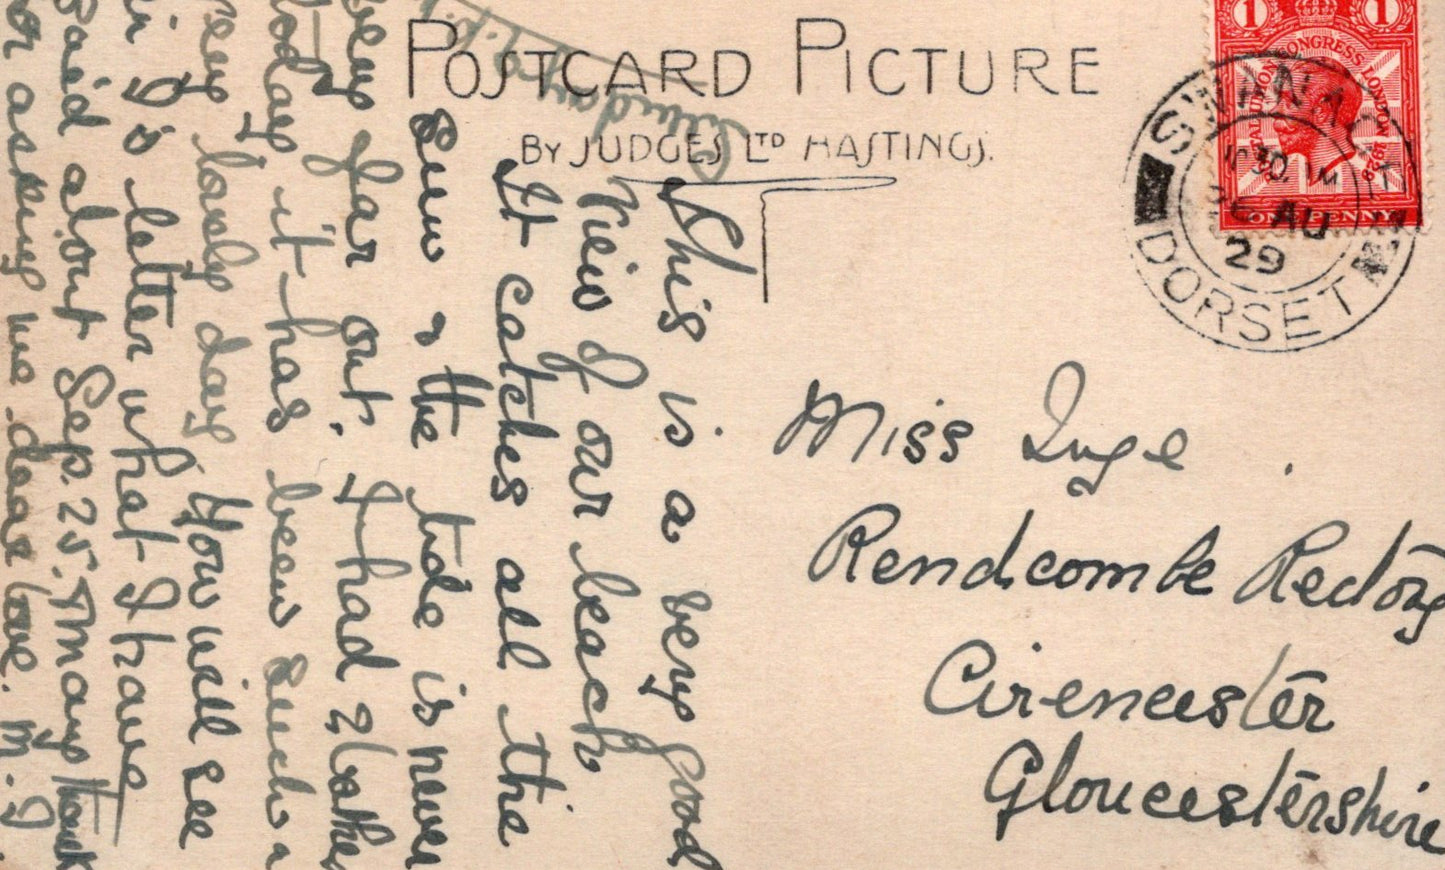 POSTCARD PICTURE
BY JUDGES LTD HASTINGS.
1 1
POSTAL UNION CONGRESS LONDON 1929
ONE PENNY
SWANAGE
10 30 AM
AU
29
DORSET
Miss Inge
Rendcombe Rectory
Cirencester
Gloucestershire
Saturday
This is a very good
View of our beach
It catches all the
Sun & the tide is never
very far out. I had 2 bathes
today it has been such a
very lovely day You will see
in G's letter what I have
said about Sep. 25. Many thanks
for asking me. dear love. M. G